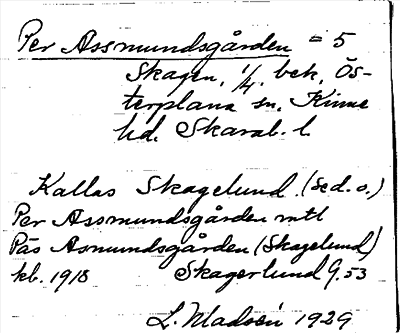 Per Assmundsgården = 5
Skagen, 1/4. bek, Ös-
terplana sn. Kinne
hd. Skarab. l.
Kallas Skagelund. (se d. o.)
Per Assmundsgården mtl
Pås Asmundsgården (Skagelund)
kb. 1918 Skagerlund G. 53
L. Madsén 1929